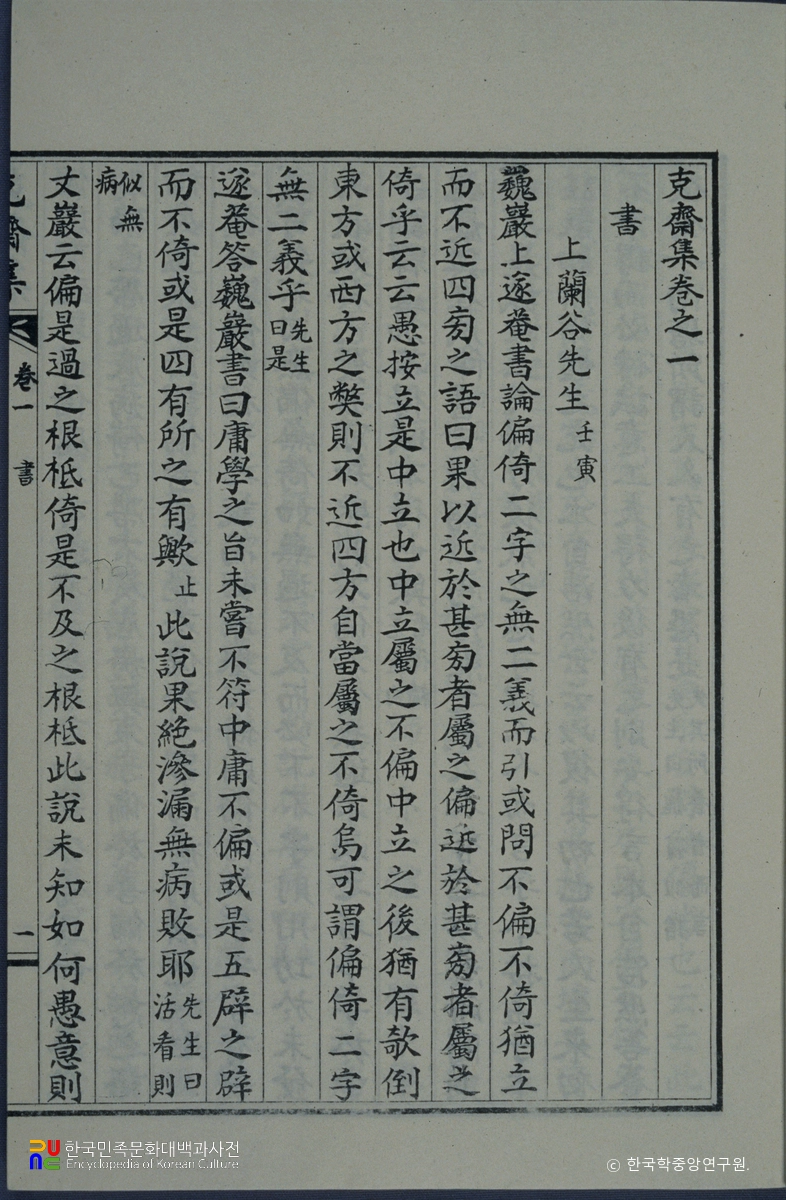 克齋集卷之一
書
上蘭谷先生 壬寅
巍巖上遂菴書論偏倚二字之無二義而引或問不偏不倚猶立
而不近四旁之語曰果以近於甚旁者屬之偏近於甚旁者屬之
倚乎云云愚按立是中立也中立屬之不偏中立之後猶有欹倒
東方或西方之弊則不近四方自當屬之不倚烏可謂偏倚二字
無二義乎 先生曰是
遂菴答巍巖書曰庸學之旨未嘗不符中庸不偏或是五辟之辟
而不倚或是四有所之有歟 止 此說果絶滲漏無病敗耶 先生曰活看則
似無病
丈巖云偏是過之根柢倚是不及之根柢此說未知如何愚意則
克齋集 卷一 書 一
한국민족문화대백과사전
Encyclopedia of Korean Culture
ⓒ 한국학중앙연구원.